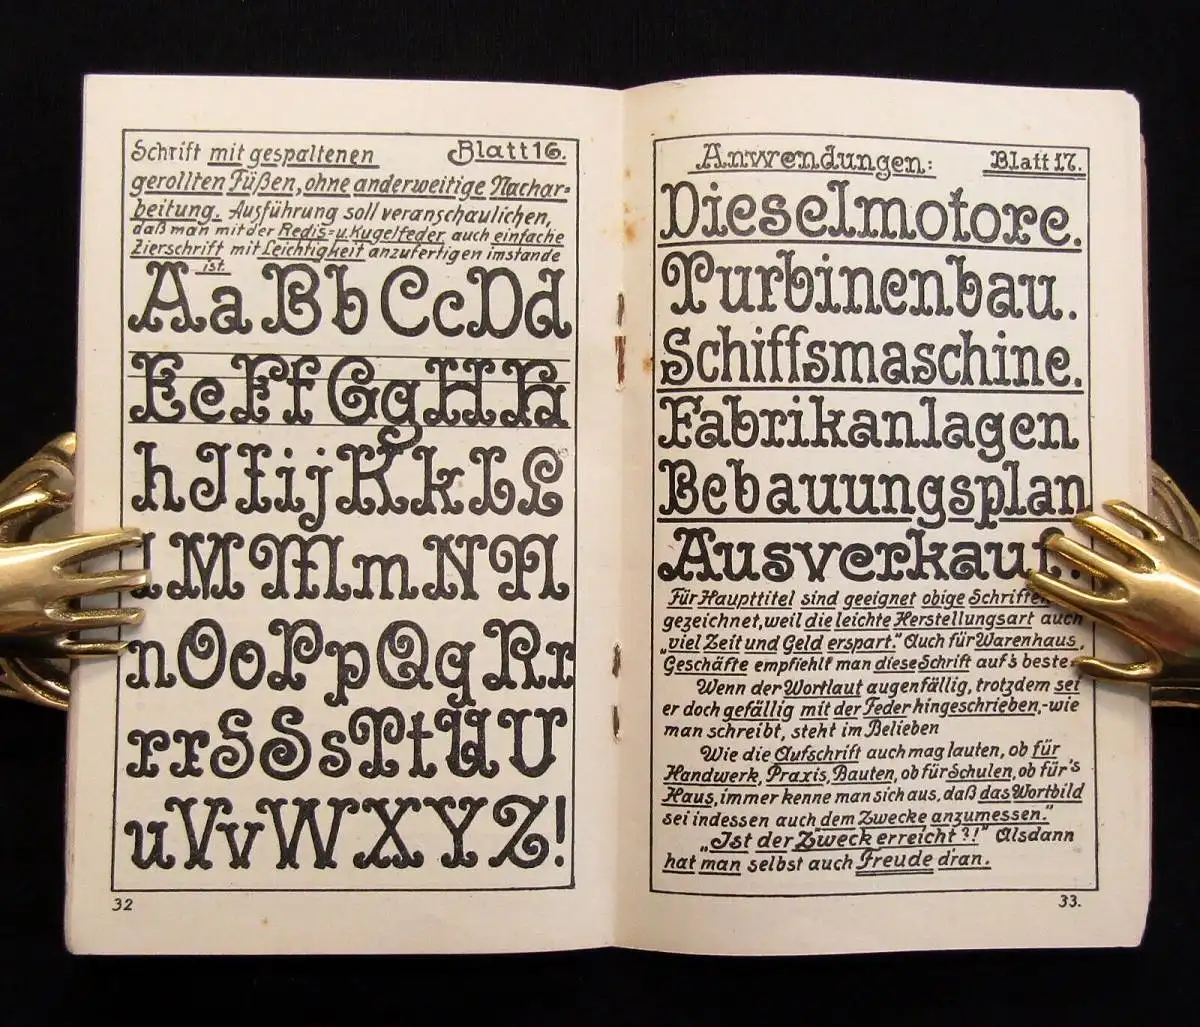 Schrift mit gespaltenen Blatt 16.
gerollten Füßen, ohne anderweitige Nachar=
beitung. Ausführung soll veranschaulichen,
daß man mit der Redis= u. Kugelfeder auch einfache
Zierschrift mit Leichtigkeit anzufertigen imstande
ist.
Aa Bb Cc Dd
Ee Ff Gg H H
h J I i j K k L L
l M M m N N
n O o P p Q q R r
r r S S s T t U U
u V v W X Y Z !
32
Anwendungen: Blatt 17.
Dieselmotore.
Turbinenbau.
Schiffsmaschine.
Fabrikanlagen
Bebauungsplan
Ausverkauf.
Für Haupttitel sind geeignet obige Schriften
gezeichnet, weil die leichte Herstellungsart auch
„viel Zeit und Geld erspart." Auch für Warenhaus,
Geschäfte empfiehlt man diese Schrift auf's beste.
Wenn der Wortlaut augenfällig, trotzdem sei
er doch gefällig mit der Feder hingeschrieben,-wie
man schreibt, steht im Belieben
Wie die Aufschrift auch mag lauten, ob für
Handwerk, Praxis, Bauten, ob für Schulen, ob für's
Haus, immer kenne man sich aus, daß das Wortbild
sei indessen auch dem Zwecke anzumessen."
„Ist der Zweck erreicht?!" Alsdann
hat man selbst auch Freude d'ran.
33.